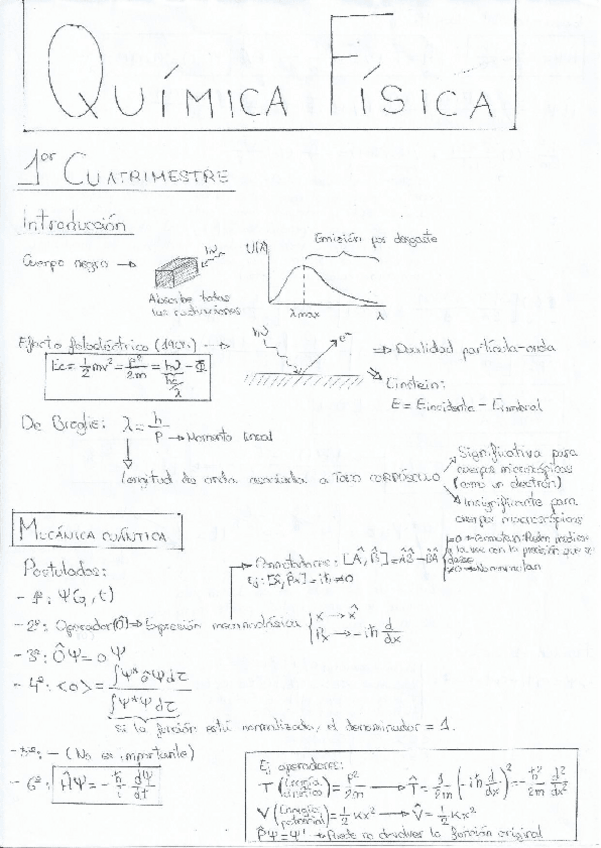 QUÍMICA FÍSICA
1er CUATRIMESTRE
Introducción
Cuerpo negro → hν
Absorbe todas
las radiaciones
U(λ) Emisión por desgaste
λmax λ
Efecto fotoeléctrico (190.) → hν e⁻ ⇒ Dualidad partícula-onda
Ec = 1/2 mv² = p²/2m = hν - Φ
hc/λ
Einstein:
E = Eincidente - Eumbral
De Broglie: λ = h/p → Momento lineal
longitud de onda asociada a TODO CORPÚSCULO
Significativa para
cuerpos microscópicos
(como un electrón)
Insignificante para
cuerpos macroscópicos
MECÁNICA CUÁNTICA
Postulados:
Conmutadores: [Â, B̂] = ÂB̂ - B̂Â
=0 → Conmutan: Pueden medirse
a la vez con la precisión que se
desee
≠0 → No conmutan
Ej: [x̂, p̂x] = iħ ≠ 0
- 1º: Ψ(r, t)
- 2º: Operador (Ô) ⇒ Expresión mecanocuántica { x → x̂
Px → -iħ d/dx
- 3º: ÔΨ = oΨ
- 4º: <o> = ∫Ψ* ôΨdτ / ∫Ψ*Ψdτ
si la función está normalizada, el denominador = 1.
- 5º: - (No es importante)
- 6º: ĤΨ = - ħ/i dΨ/dt
Ej operadores:
T (Energía cinética) = p²/2m → T̂ = 1/2m (-iħ d/dx)² = -ħ²/2m d²/dx²
V (Energía potencial) = 1/2 Kx² → V̂ = 1/2 Kx²
p̂Ψ = Ψ' → Puede no devolver la función original